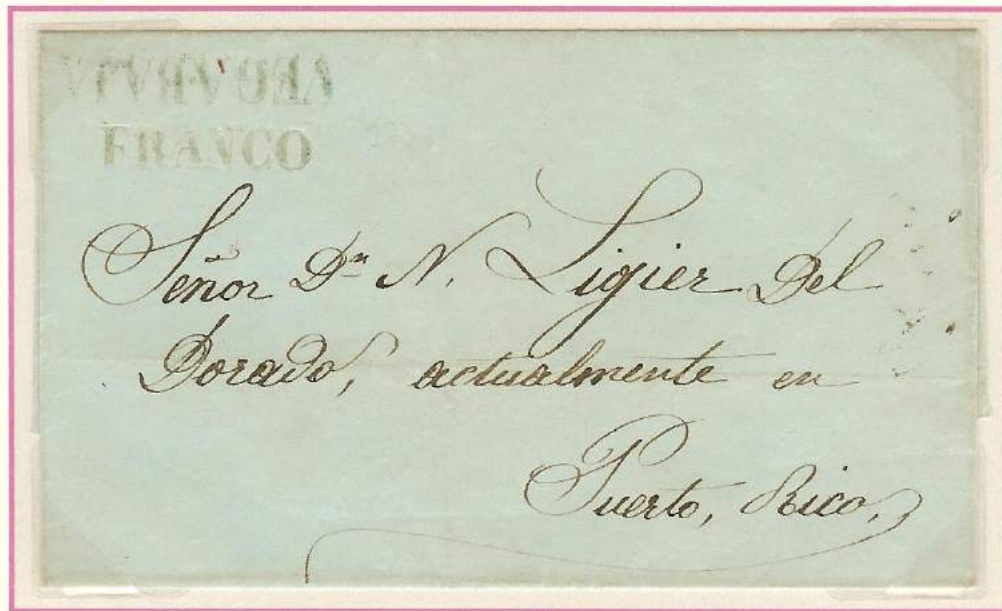 VEGA-BAJA
FRANCO
Señor Dn N. Ligier Del
Dorado, actualmente en
Puerto, Rico,